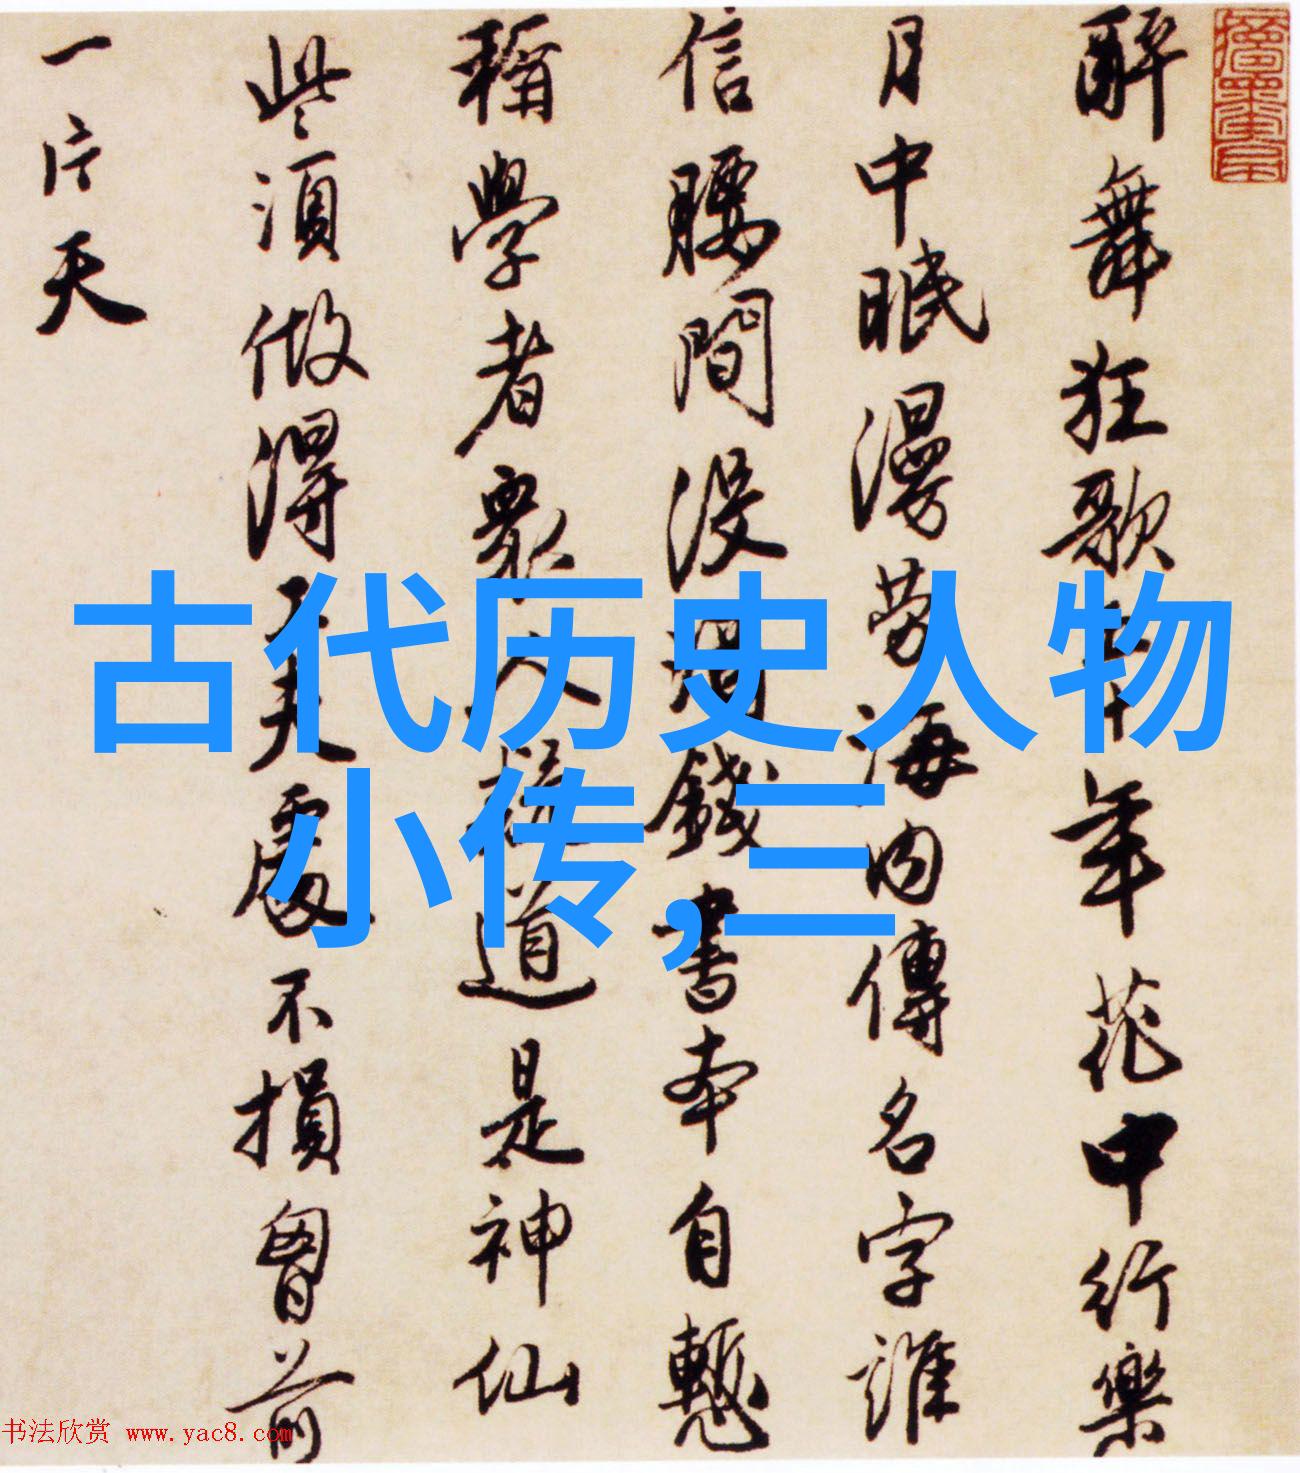 醉舞狂歌五十年花中行樂
月中眠漫勞海內傳名字誰
信腰間沒酒錢書本自慙
稱學者眾人疑道是神仙
些須做得工夫處不損胷前
一片天
古代历史人物
小传,三
书法欣赏 www.yac8.com